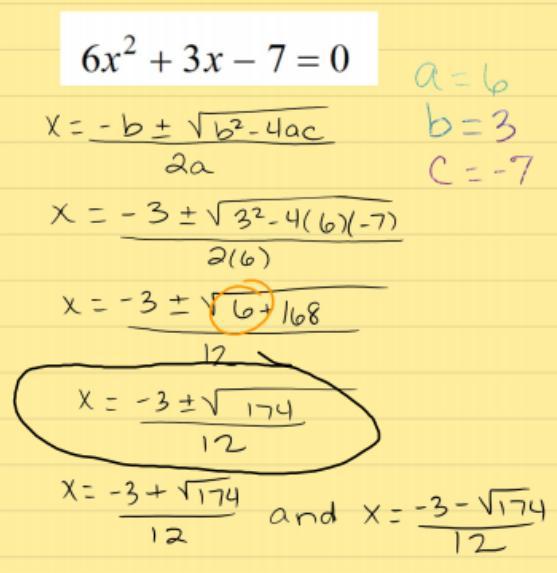 6x² + 3x − 7 = 0
a = 6
b = 3
c = -7
x = -b ± √b² - 4ac / 2a
x = -3 ± √3² - 4(6)(-7) / 2(6)
x = -3 ± √6 + 168 / 12
x = -3 ± √174 / 12
x = -3 + √174 / 12 and x = -3 - √174 / 12